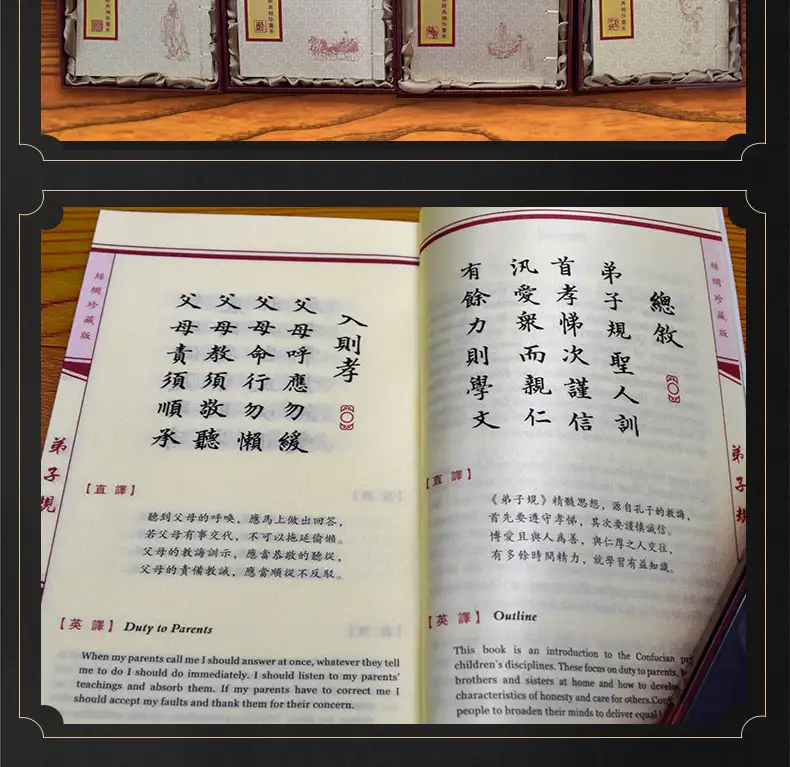 絲綢珍藏版
弟子規
總敘
弟子規聖人訓
首孝悌次謹信
汎愛眾而親仁
有餘力則學文
【直譯】
《弟子規》精髓思想，源自孔子的教誨，
首先要遵守孝悌，其次要謹慎誠信。
博愛且與人為善，與仁厚之人交往，
有多餘時間精力，就學習有益知識。
【英譯】 Outline
This book is an introduction to the Confucian
children's disciplines. These focus on duty to parents,
brothers and sisters at home and how to
characteristics of honesty and care for others.
people to broaden their minds to deliver equal
入則孝
父母呼應勿緩
父母命行勿懶
父母教須敬聽
父母責須順承
【直譯】
聽到父母的呼喚，應馬上做出回答，
若父母有事交代，不可以拖延偷懶。
父母的教誨訓示，應當恭敬的聽從，
父母的責備教誡，應當順從不反駁。
【英譯】 Duty to Parents
When my parents call me I should answer at once, whatever they tell
me to do I should do immediately. I should listen to my parents'
teachings and absorb them. If my parents have to correct me I
should accept my faults and thank them for their concern.
絲綢珍藏版
弟子規